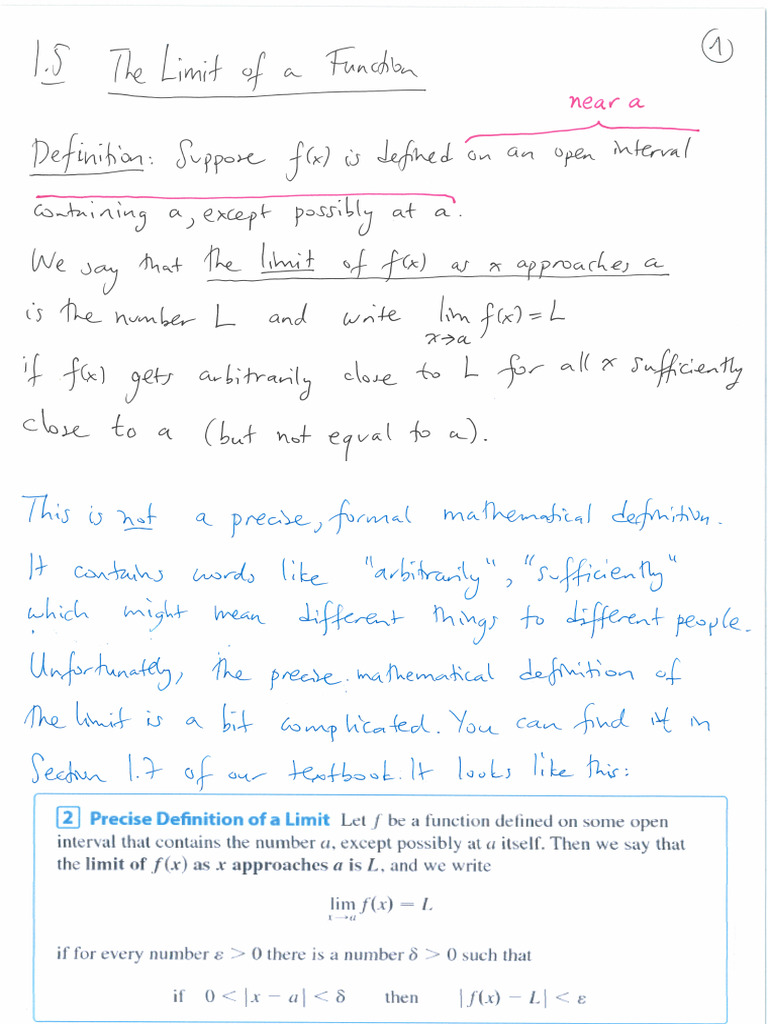 1.5 The Limit of a Function
1
near a
Definition: Suppose f(x) is defined on an open interval
containing a, except possibly at a.
We say that the limit of f(x) as x approaches a
is the number L and write lim f(x) = L
x→a
if f(x) gets arbitrarily close to L for all x sufficiently
close to a (but not equal to a).
This is not a precise, formal mathematical definition.
It contains words like "arbitrarily", "sufficiently"
which might mean different things to different people.
Unfortunately, the precise mathematical definition of
the limit is a bit complicated. You can find it in
Section 1.7 of our textbook. It looks like this:
2 Precise Definition of a Limit Let f be a function defined on some open
interval that contains the number a, except possibly at a itself. Then we say that
the limit of f(x) as x approaches a is L, and we write
lim f(x) = L
x→a
if for every number ε > 0 there is a number δ > 0 such that
if 0 < |x − a| < δ then |f(x) − L| < ε